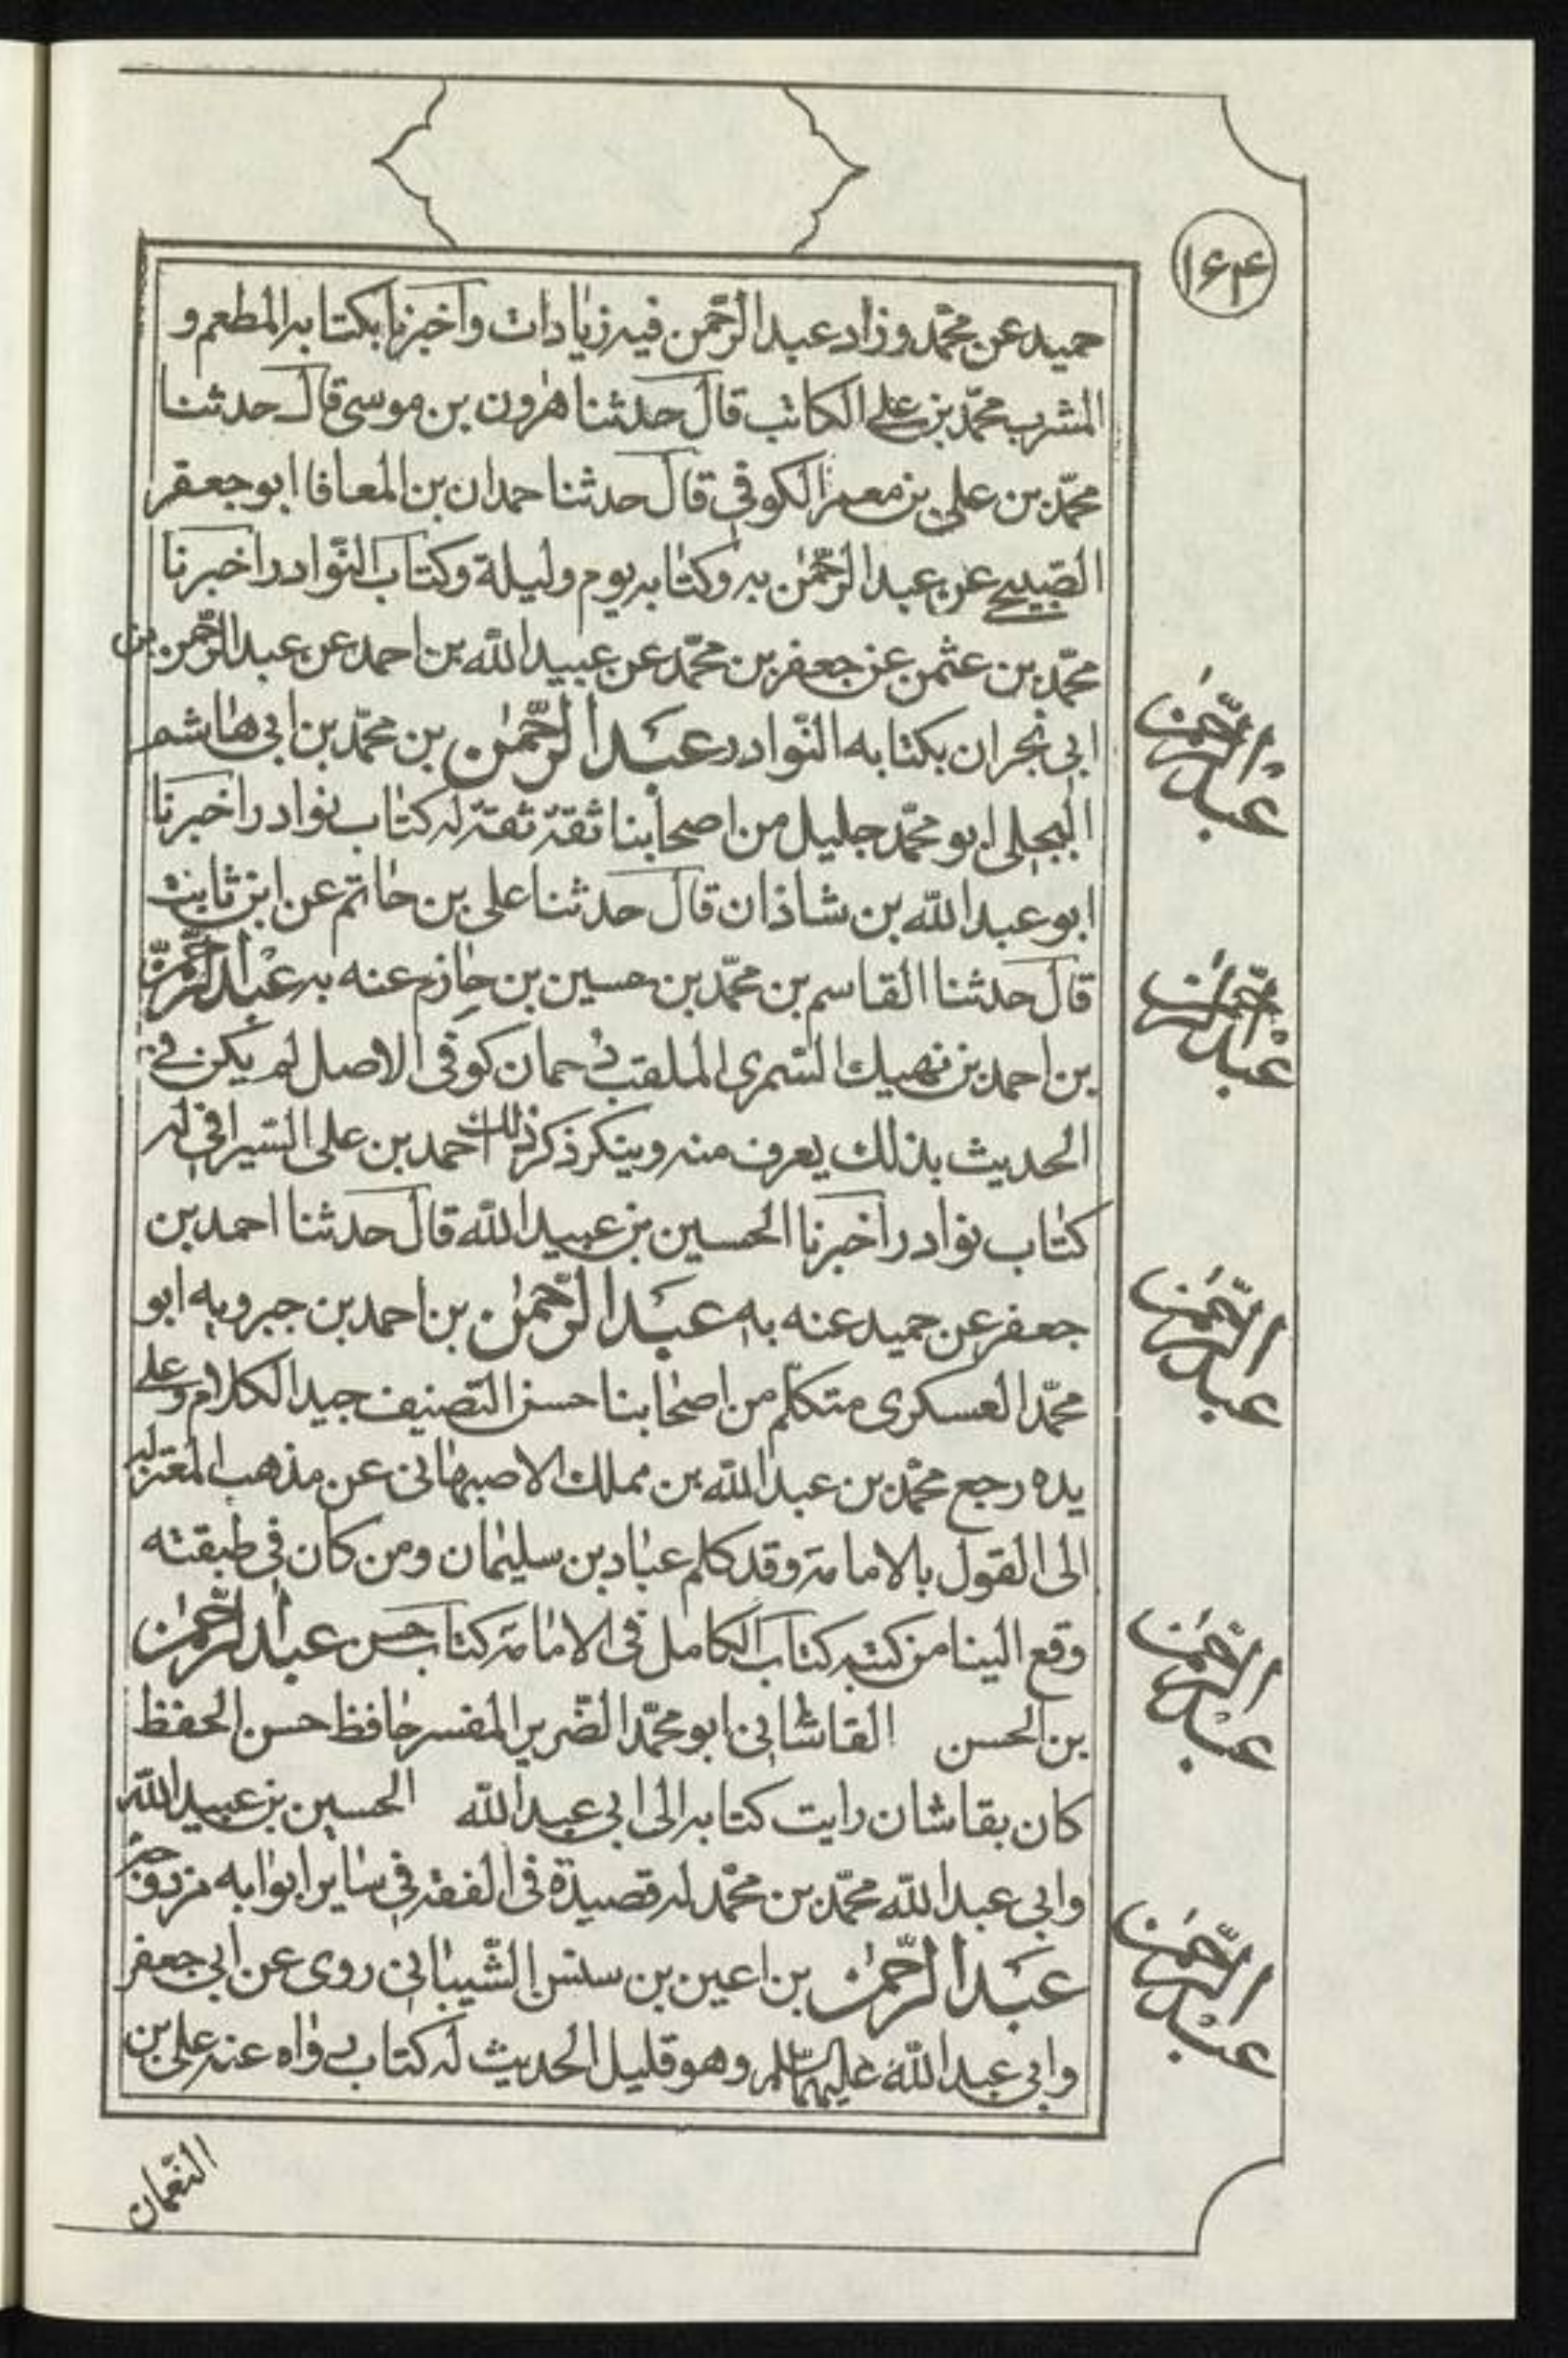 ۱۶۴
حميد عن محمّد وزاد عبد الرّحمن فيه زيادات واخبرنا بكتابه المطعم و
المشرب محمّد بن علي الكاتب قال حدثنا هرون بن موسى قال حدثنا
محمّد بن علي بن معمر الكوفي قال حدثنا حمدان بن المعافا ابو جعفر
الصّبيحي عن عبد الرّحمٰن به وكتابه يوم وليلة وكتاب النّوادر اخبرنا
محمّد بن عثمن عن جعفر بن محمّد عن عبيد الله بن احمد عن عبد الرّحمن بن
ابي نجران بكتابه النّوادر عبد الرّحمٰن بن محمّد بن ابي هاشم
البجلي ابو محمّد جليل من اصحابنا ثقة ثقة له كتاب نوادر اخبرنا
ابو عبد الله بن شاذان قال حدثنا علي بن حاتم عن ابن ثابت
قال حدثنا القاسم بن محمّد بن حسين بن حازم عنه به عبد الرّحمٰن
بن احمد بن نهيك السّمري الملقب دحمان كوفي الاصل لم يكن في
الحديث بذلك يعرف منه وينكر ذكر ذلك احمد بن علي السّيرافي له
كتاب نوادر اخبرنا الحسين بن عبيد الله قال حدثنا احمد بن
جعفر عن حميد عنه به عبد الرّحمٰن بن احمد بن جبرويه ابو
محمّد العسكري متكلّم من اصحابنا حسن التّصنيف جيد الكلام وعلى
يده رجع محمّد بن عبد الله بن مملك الاصبهاني عن مذهب المعتزله
الى القول بالامامة وقد كلم عباد بن سليمان ومن كان في طبقته
وقع الينا من كتبه كتاب الكامل في الامامة كتاب حسن عبد الرّحمٰن
بن الحسن القاشاني ابو محمّد الضّرير المفسر حافظ حسن الحفظ
كان بقاشان رايت كتابه الى ابي عبد الله الحسين بن عبيد الله
وابي عبد الله محمّد بن محمّد له قصيدة في الفقه في ساير ابوابه
عبد الرّحمٰن بن اعين بن سنسن الشّيباني روى عن ابي جعفر
وابي عبد الله عليهما السّلم وهو قليل الحديث له كتاب رواه عنه علي بن
النّعمان
عبد الرّحمٰن
عبد الرّحمٰن
عبد الرّحمٰن
عبد الرّحمٰن
عبد الرّحمٰن